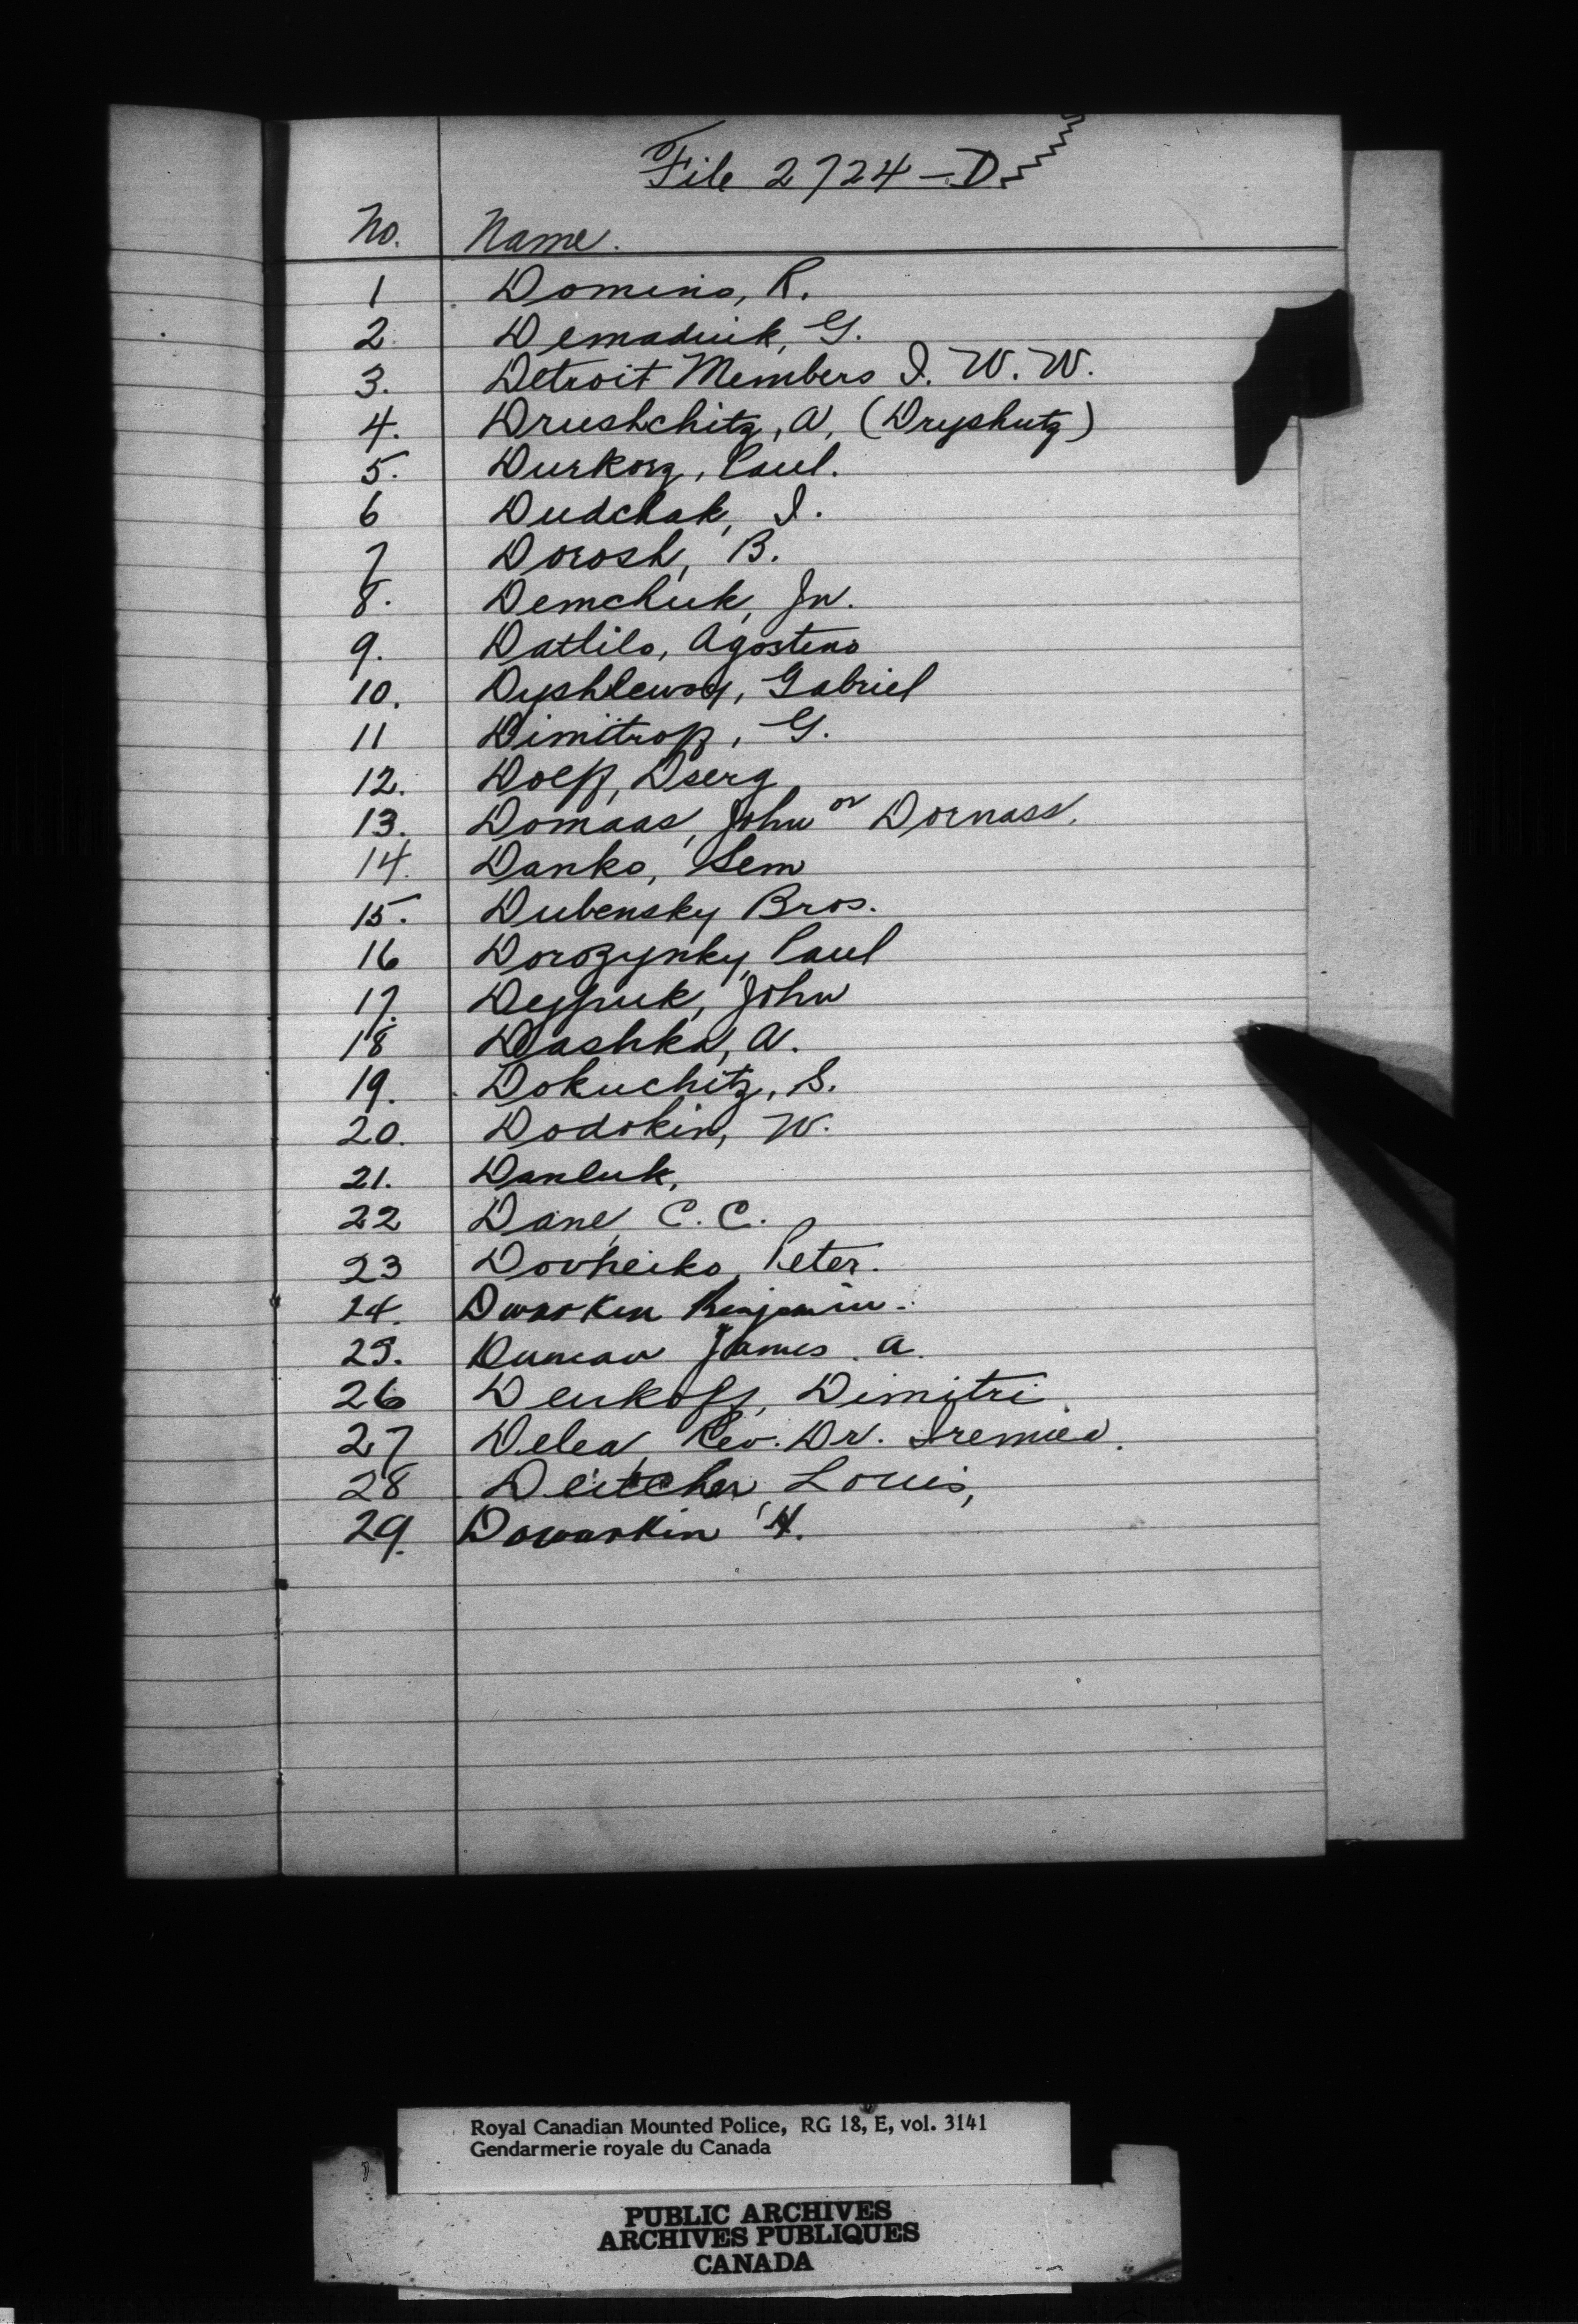 File 2724-D
No. Name.
1 Domino, R.
2. Demadiuk, G.
3. Detroit Members I. W. W.
4. Drushchitz, A. (Dryshutz)
5. Durkorz, Paul.
6 Dudchak, I.
7 Dorosh, B.
8. Demchuk, Jn.
9. Datlilo, Agosteno
10. Dyshlewoy, Gabriel
11 Dimitroff, G.
12. Doeff, Dserg
13. Domaas, John or Dornass.
14. Danko, Sem
15. Dubensky Bros.
16 Dorozynky, Paul
17. John
18 Dashka, A.
19. Dokuchitz, S.
20. Dodokin, W.
21. Danluk,
22 Dane, C. C.
23 Dovheiko, Peter.
24. Dworken Benjamin.
25. Duncan James. A.
26 Denkoff, Dimitri.
27 Delea, Rev. Dr. Iremiea.
28 Deitcher, Louis,
29. Dowarkin H.
Royal Canadian Mounted Police, RG 18, E, vol. 3141
Gendarmerie royale du Canada
PUBLIC ARCHIVES
ARCHIVES PUBLIQUES
CANADA